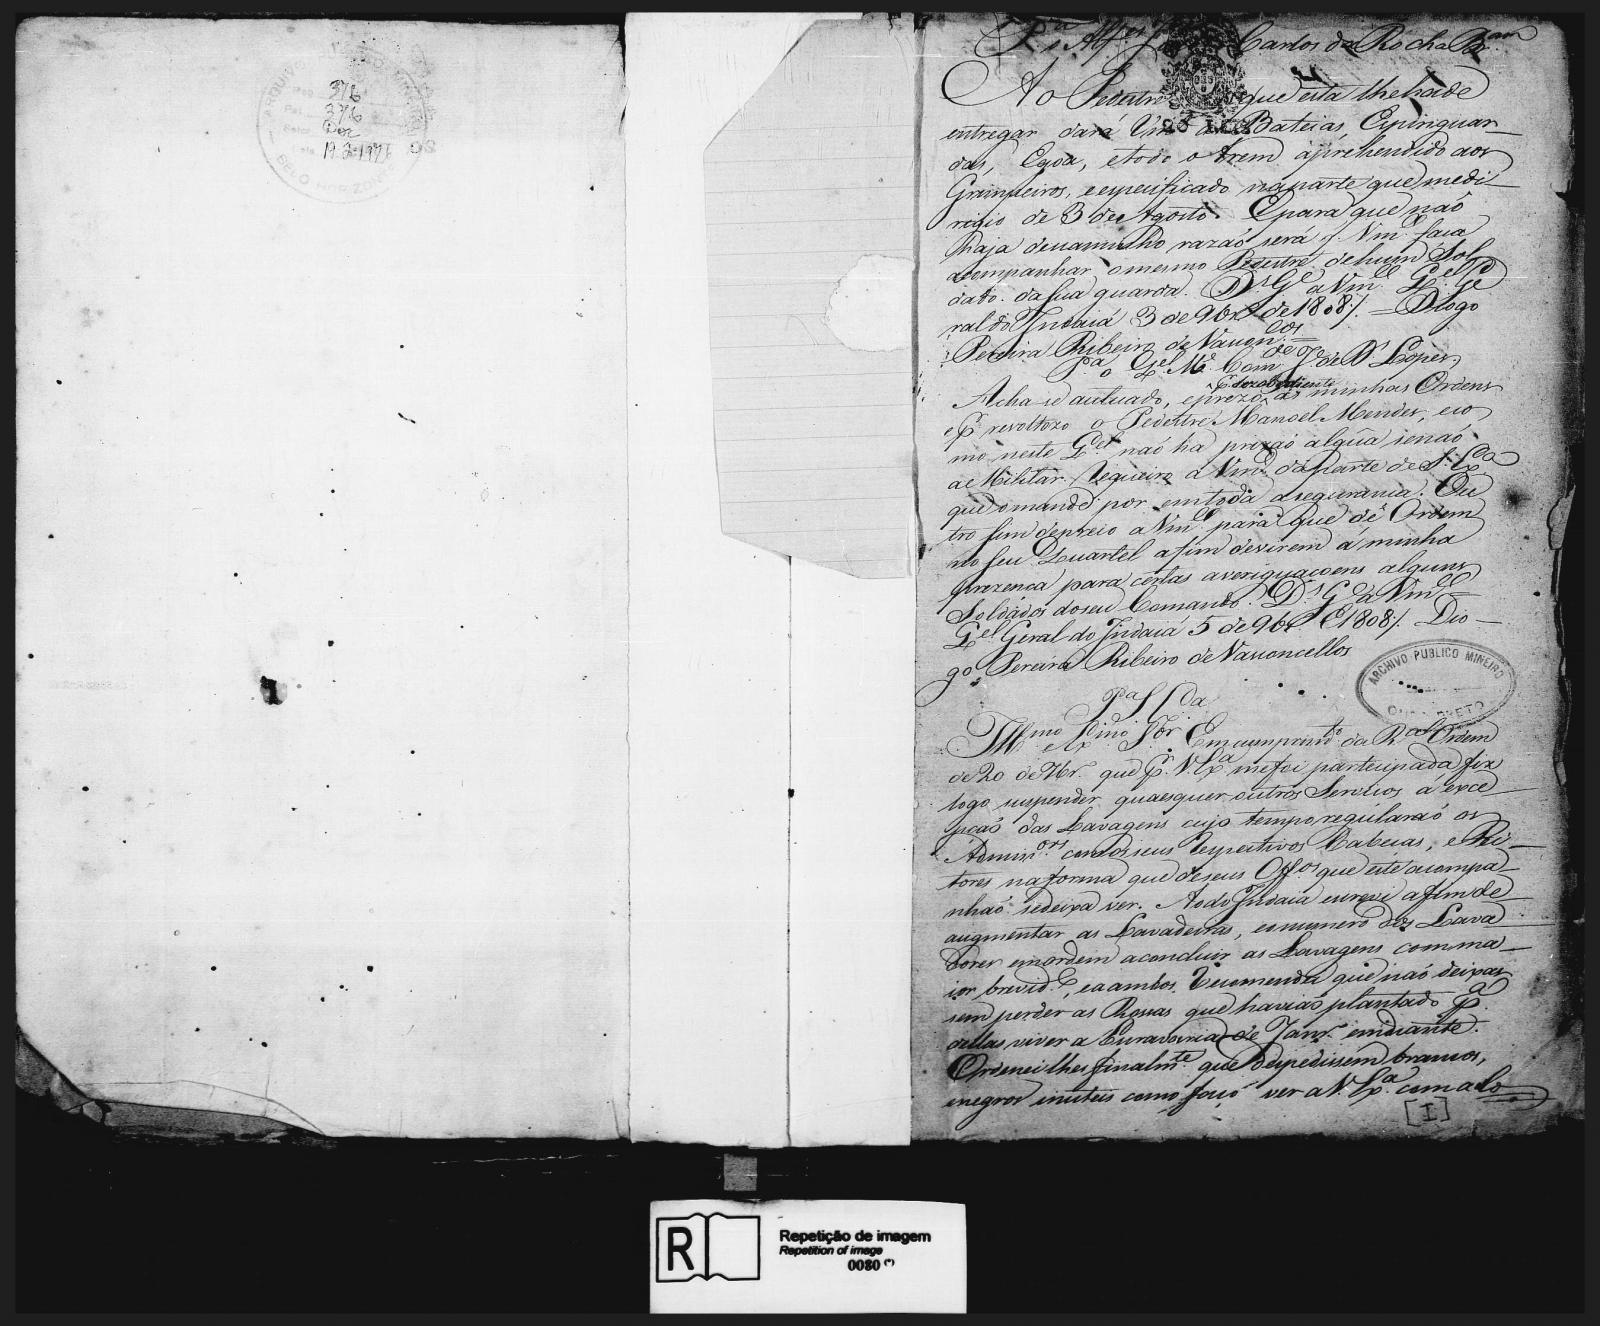 ARQUIVO
376
376
Dez
19-3-1976
BELO HORIZONTE
Carlos da Rocha
Ao Pedestre que esta lhe hade
entregar dará Vmce as Bateias, Espinguar-
das, Egoa, etodo o trem aprehendido aos
Grimpeiros, eespecificado naparte que medi-
rigio de 3 de Agosto. Epara que naõ
haja descaminho razaõ será q. Vmce faça
acompanhar omesmo Pedestre dehum Sol
dado da sua guarda. Ds Ge a Vmce Qel Ge
ral do Indaiá 3 de 9br.o de 1808 /. = Diogo
Pereira Ribeiro de Vascon.cos =
Pa o Com de Je de Ds Lopes
Acha se autuado, eprezo, as minhas Ordens
E desobediente
e pr revoltozo o Pedestre Manoel Mendes, eco
mo neste Qel naõ ha prizaõ algũa senaõ
a Militar. Requeiro a Vmce da parte de S. Exa
que omande por emtoda asegurança. Ou
tro sim depreco a Vmce para que dê Ordem
no seu Quartel afim devirem a minha
prezença para certas averiguaçoens alguns
Soldados doseu Comando. Ds Ge a Vmce =
Qel Geral do Indaiá 5 de 9br.o de 1808 /. Dio-
go Pereira Ribeiro de Vasconcellos
ARCHIVO PUBLICO MINEIRO
OURO PRETO
Pa S. Exa
Illmo Exmo Snr. Em cumprimto da Ral Ordem
de 20 de 7br. que pr. V. Exa mefoi participada fiz
logo suspender quaesquer outros Servicos á exce
pçaõ das Lavagens cujo tempo regularaõ os
Admin.ores comosseus respectivos Cabeças, e Fei-
tores naforma que deseus Offos que este acompa-
nhaõ sedeixa ver. Ao do Indaiá escrevi afim de
augmentar as Lavadeiras, eonumero dos Lava
dores emordem aconcluir as Lavagens comma-
ior brevide, eaambos Recomendei que naõ deixas
sem perder as Rossas que haviaõ plantado pa
dellas viver a Escravaria de Janro emdiante.
Ordenei lhes finalmte que despedissem brancos,
enegros inuteis como faço ver a V. Exa com a Co
[I]
R
Repetição de imagem
Repetition of image
0080 (*)